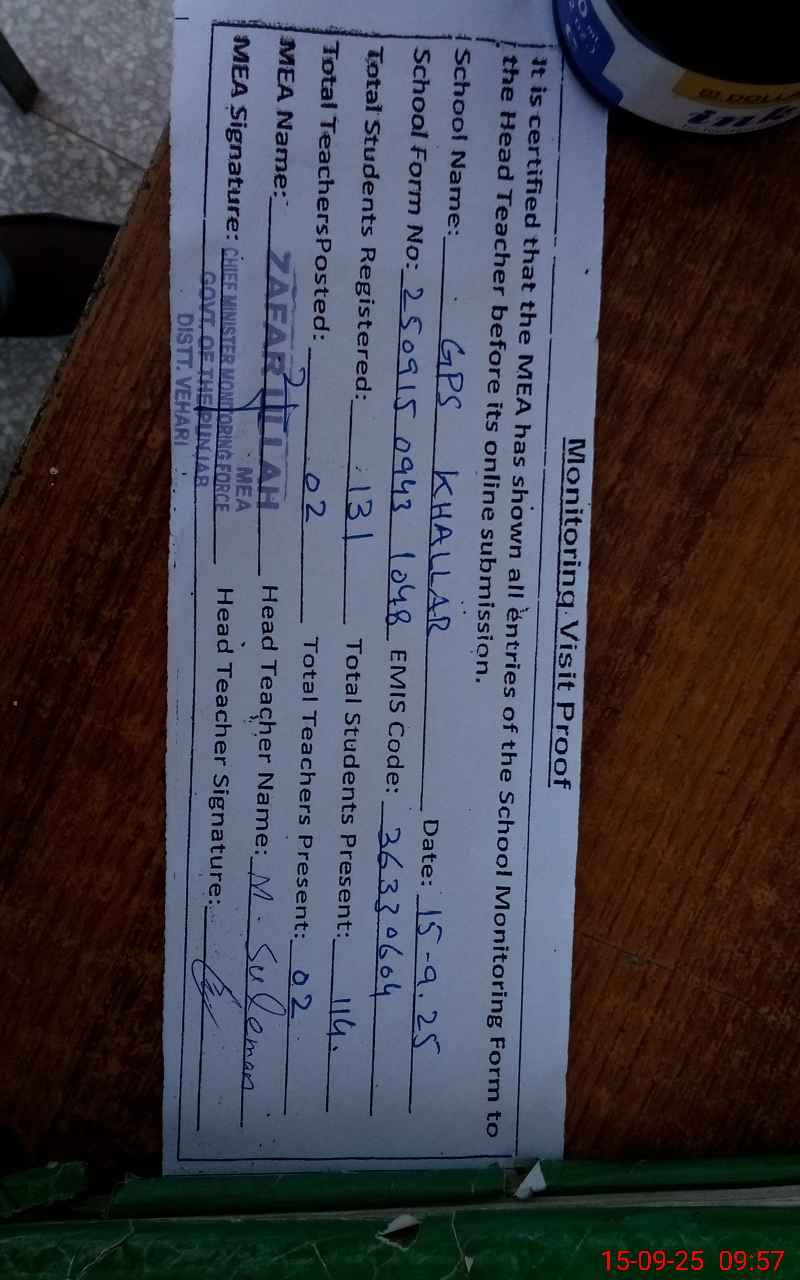 Monitoring Visit Proof
It is certified that the MEA has shown all entries of the School Monitoring Form to
the Head Teacher before its online submission.
School Name: GPS KHALLAR Date: 15-9.25
School Form No: 250915 0943 1048 EMIS Code: 36330604
Total Students Registered: 131 Total Students Present: 114.
Total TeachersPosted: 02 Total Teachers Present: 02
MEA Name: ZAFAR ULLAH Head Teacher Name: M. Suleman
MEA
MEA Signature: CHIEF MINISTER MONITORING FORCE Head Teacher Signature:
GOVT. OF THE PUNJAB
DISTT. VEHARI
DOLLAR
ink
15-09-25 09:57